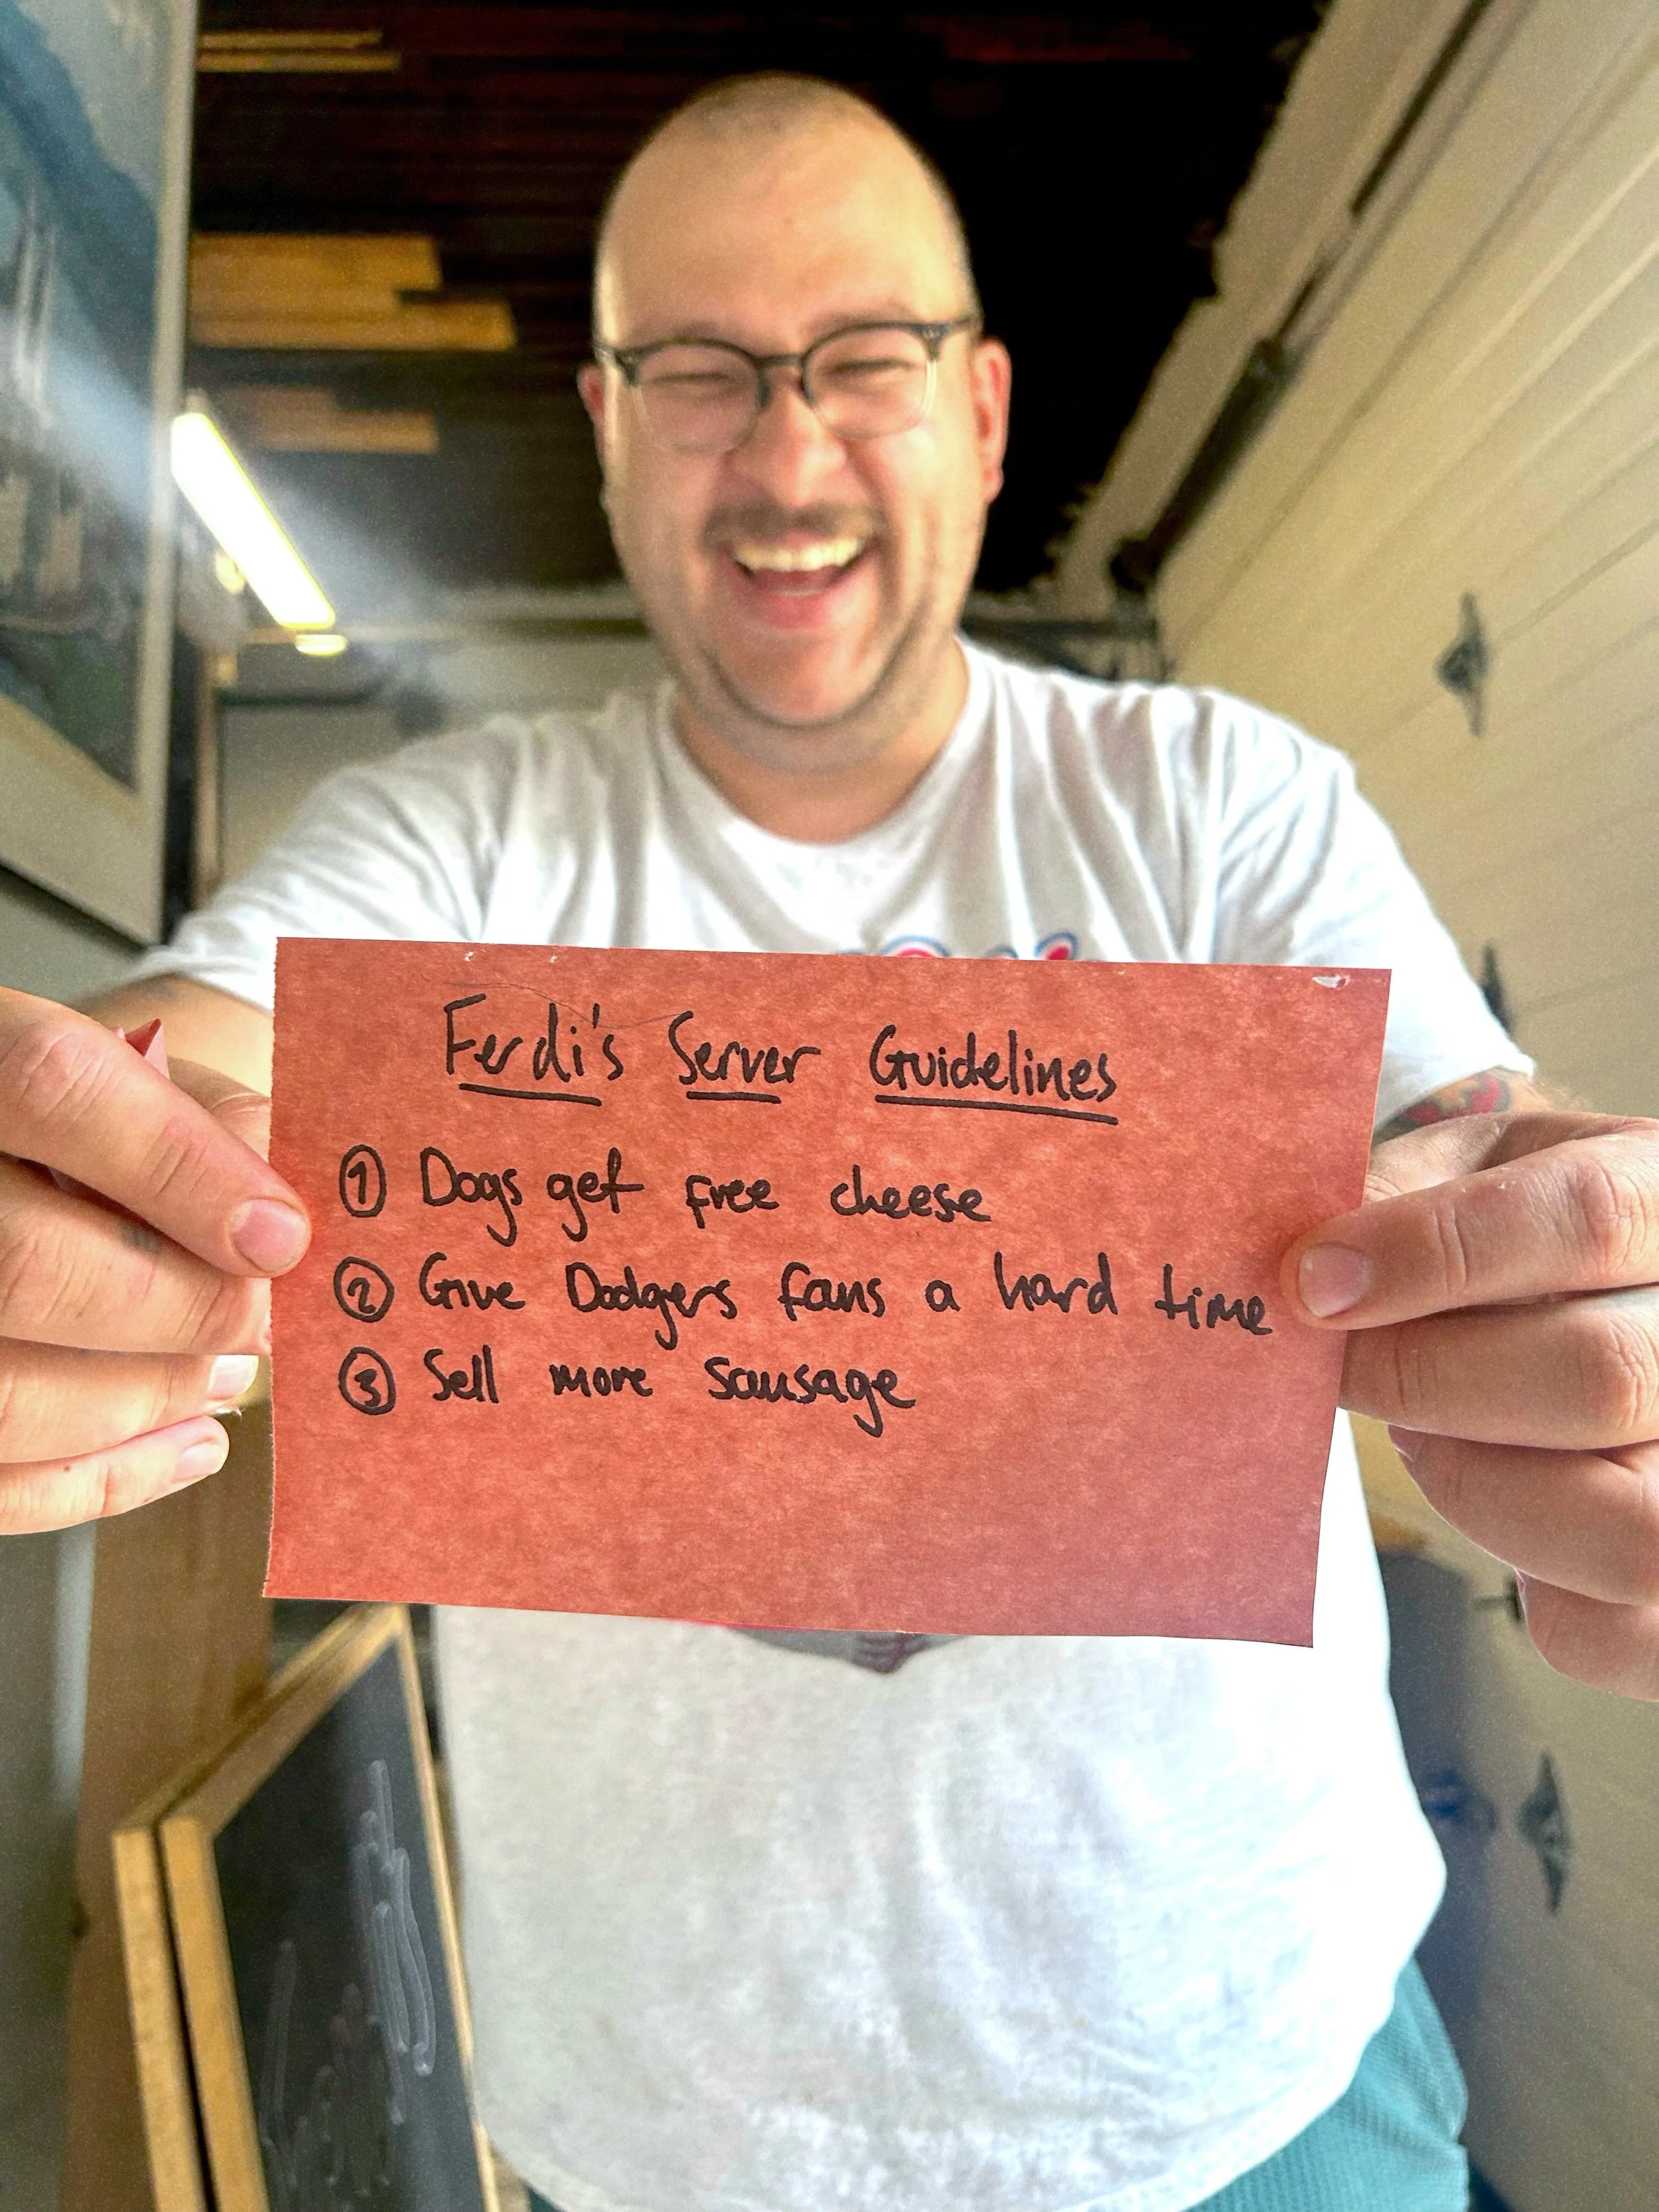 Ferdi's Server Guidelines
① Dogs get free cheese
② Give Dodgers fans a hard time
③ Sell more sausage